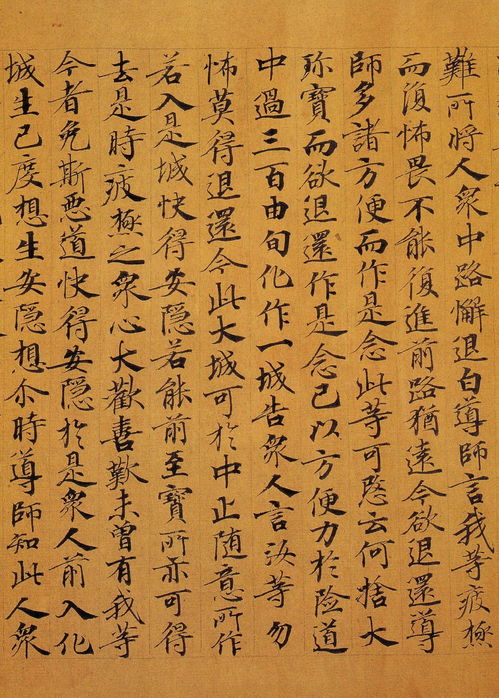 難所將人衆中路懈退白導師言我等疲極
而復怖畏不能復進前路猶遠今欲退還導
師多諸方便而作是念此等可愍云何捨大
珎寶而欲退還作是念已以方便力於险道
中過三百由旬化作一城告衆人言汝等勿
怖莫得退還今此大城可於中止随意所作
若入是城快得安隱若能前至寶所亦可得
去是時疲極之衆心大歡喜歎未曾有我等
今者免斯惡道快得安隱於是衆人前入化
城生已度想生安隱想尒時導師知此人衆